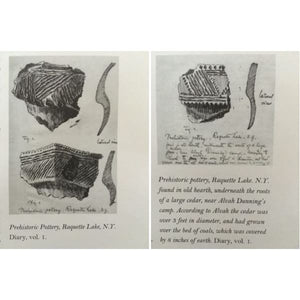 lateral
view
Fig. 1.
Fig. 2.
Prehistoric pottery, Raquette Lake, N.Y.
Prehistoric Pottery, Raquette Lake, N.Y.
Diary, vol. 1.
lateral
view
Fig. 1.
Prehistoric pottery, Raquette Lake, N.Y.
Prehistoric pottery, Raquette Lake, N.Y.
found in old hearth, underneath the roots
of a large cedar, near Alvah Dunning's
camp. According to Alvah the cedar was
over 3 feet in diameter, and had grown
over the bed of coals, which was covered
by 6 inches of earth. Diary, vol. 1.